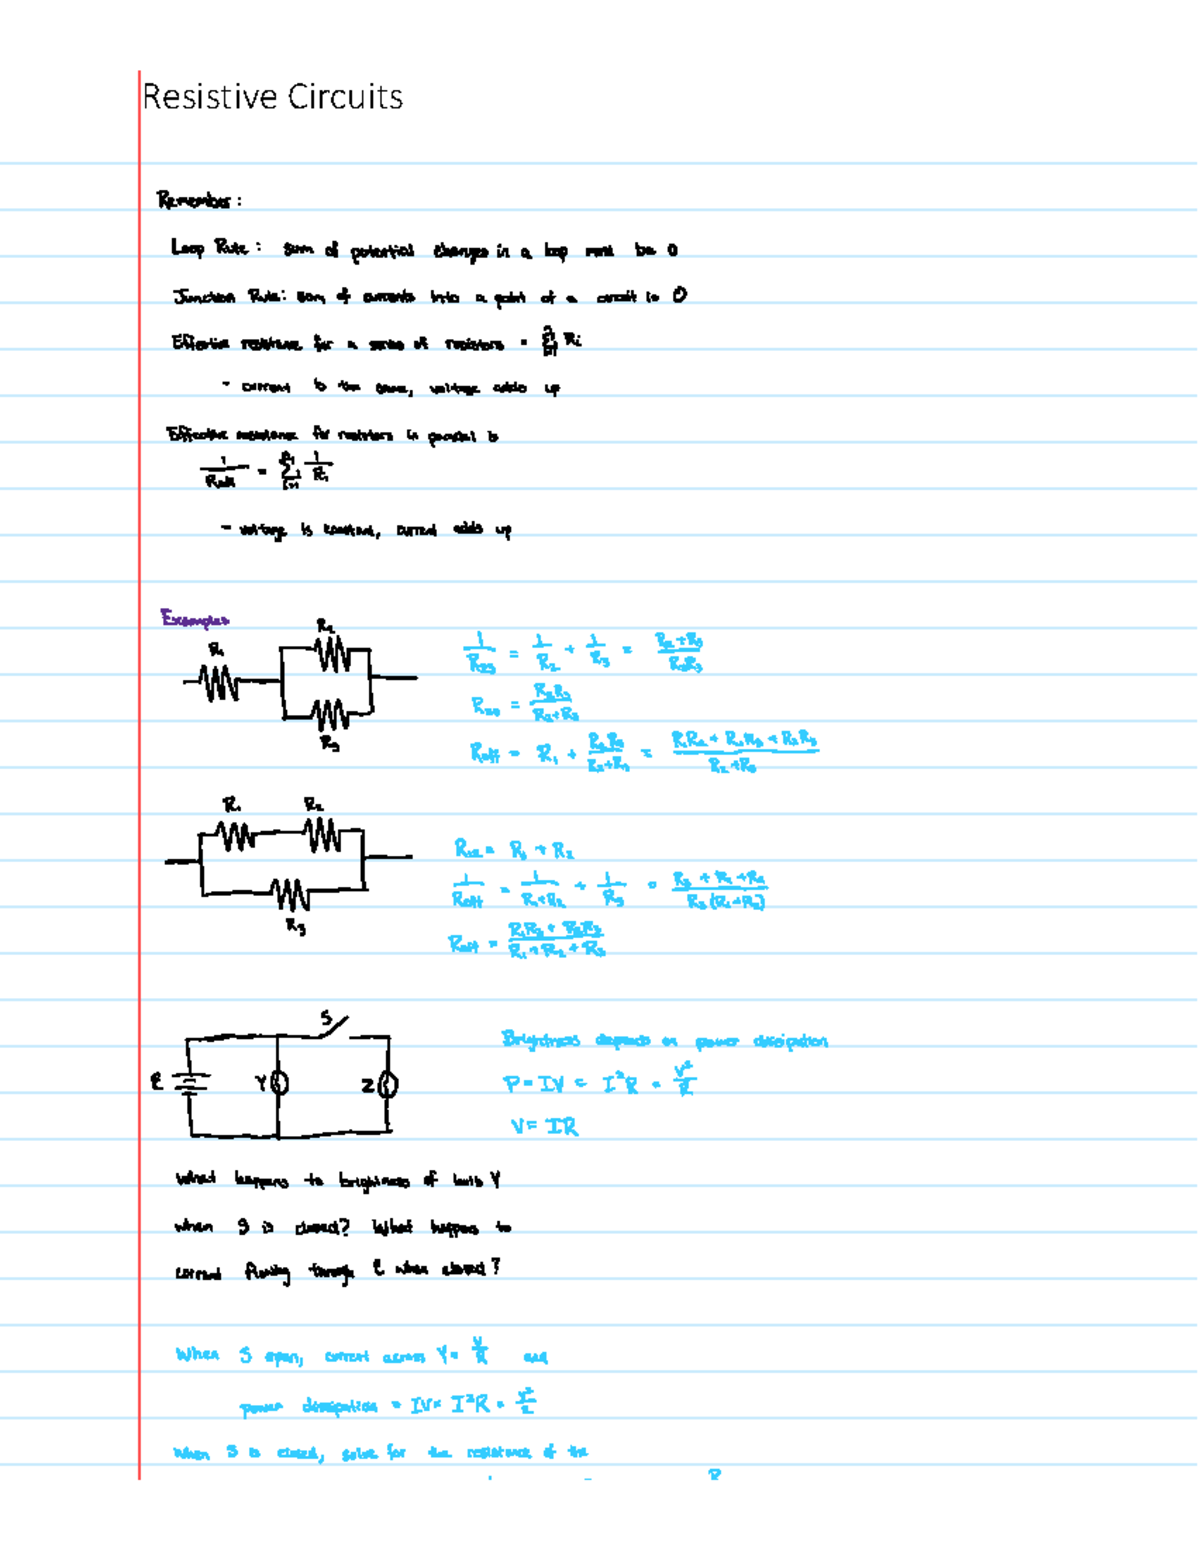 Resistive Circuits
Remember:
Loop Rule: sum of potential changes in a loop must be 0
Junction Rule: sum of currents into a point of a circuit is 0
Effective resistance for a series of resistors = Σ Ri
- current is the same, voltage adds up
Effective resistance for resistors in parallel is
= Σ 1/Ri
- voltage is constant, current adds up
Examples
R1 R2 R3
1/R23 = 1/R2 + 1/R3 = (R2+R3)/(R2R3)
R23 = R2R3/(R2+R3)
Reff = R1 + R2R3/(R2+R3) = (R1R2 + R1R3 + R2R3)/(R2+R3)
R1 R2 R3
R12 = R1 + R2
1/Reff = 1/(R1+R2) + 1/R3 = (R3 + R1 + R2)/(R3(R1+R2))
Reff = (R1R3 + R2R3)/(R1 + R2 + R3)
S
ε Y Z
Brightness depends on power dissipation
P = IV = I²R = V²/R
V = IR
What happens to brightness of bulb Y
when S is closed? What happens to
current flowing through ε when closed?
When S open, current across Y = V/R and
power dissipation = IV = I²R = V²/R
When S is closed, solve for the resistance of the